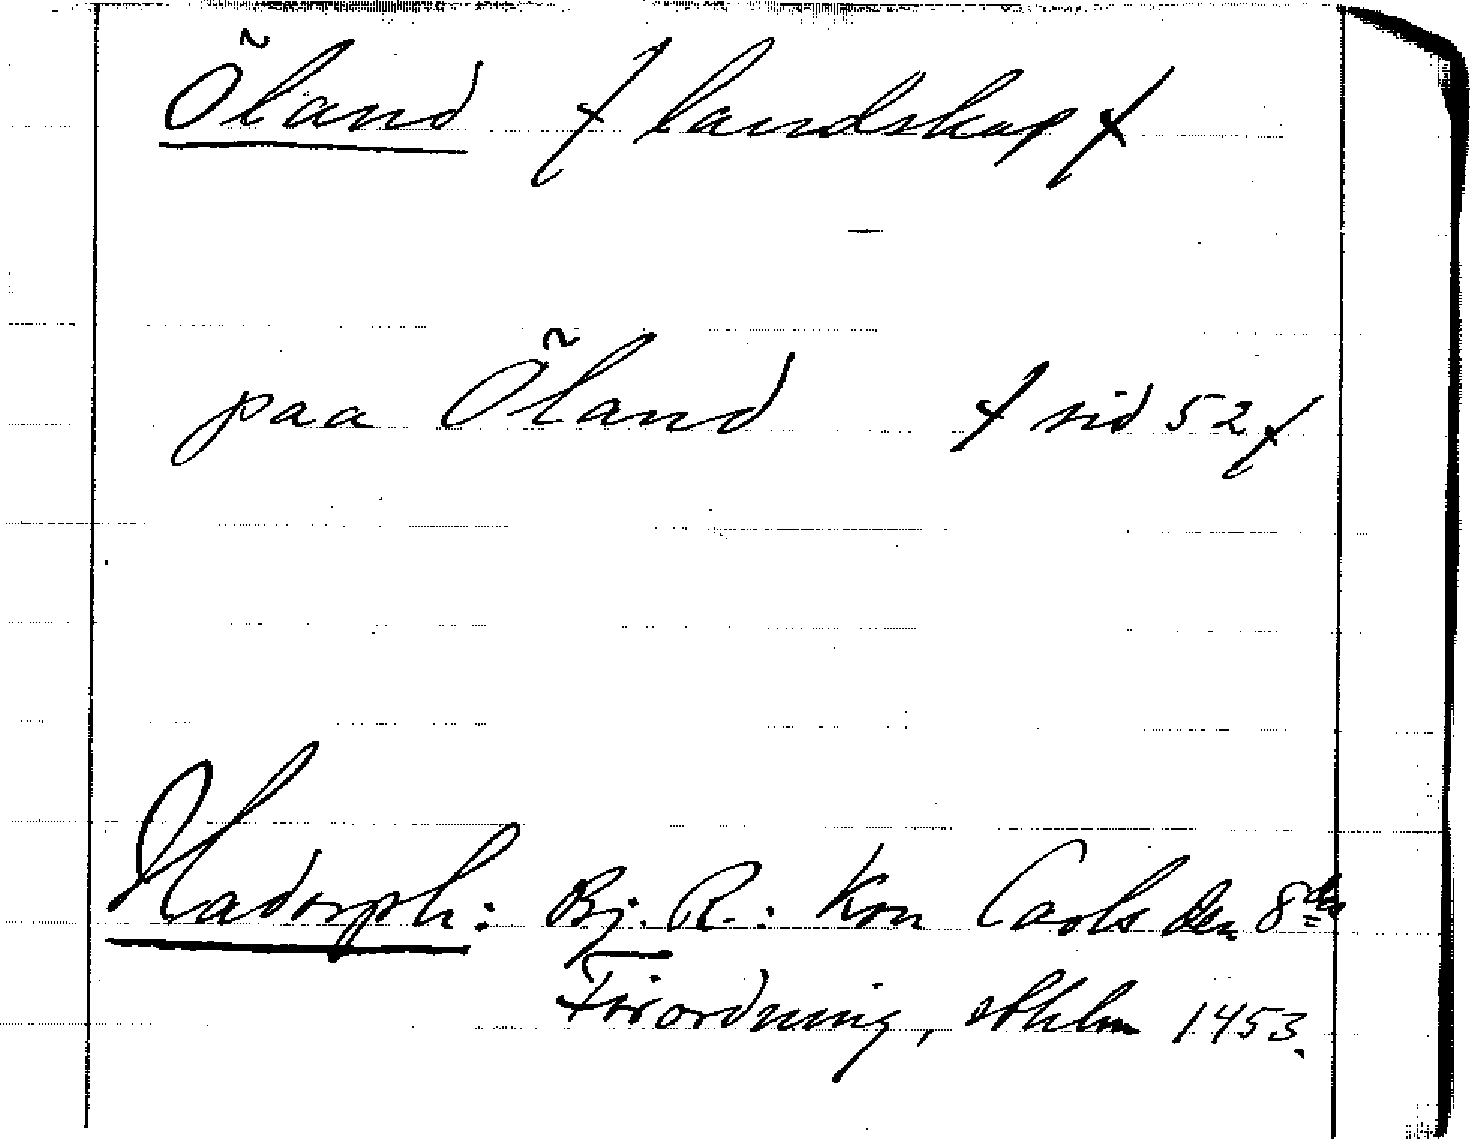 Öland / landskap /
paa Öland / sid 52 /
Hadorph: Bj. R.: Kon Carls den 8de
Förordning, sthlm 1453.